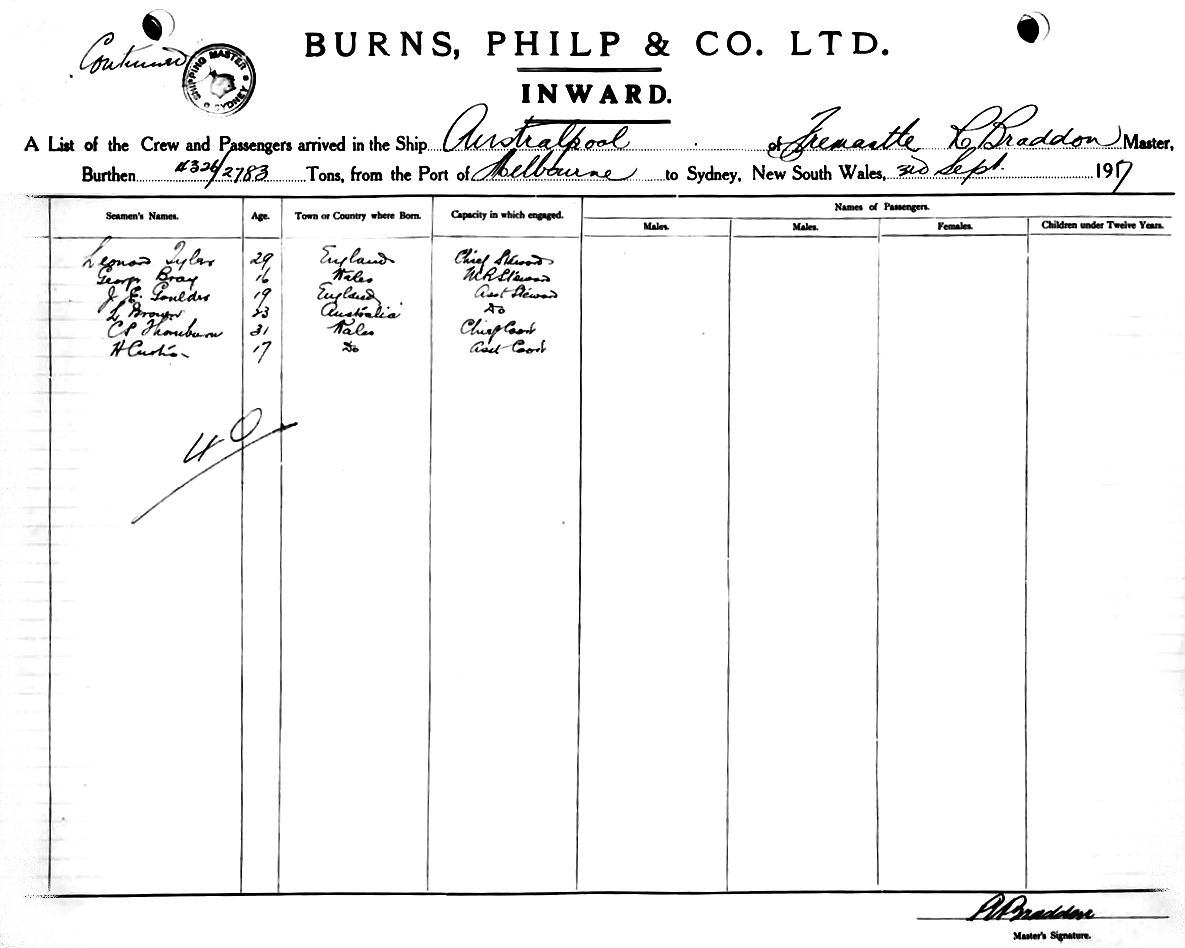 Continued
SHIPPING MASTER SYDNEY
BURNS, PHILP & CO. LTD.
INWARD.
A List of the Crew and Passengers arrived in the Ship Australpool of Fremantle R Braddon Master,
Burthen 4326/2783 Tons, from the Port of Melbourne to Sydney, New South Wales, 3rd Sept. 1917
Names of Passengers.
Seamen's Names. Age. Town or Country where Born. Capacity in which engaged. Males. Males. Females. Children under Twelve Years.
Leonard Tyler 29 England Chief Steward
George Bray 16 Wales M R Steward
J. E. Goulder 19 England Asst Steward
L Brown 23 Australia Do
C P Thornburn 31 Wales Chief Cook
H Curtis 17 Do Asst Cook
40
R Braddon
Master's Signature.